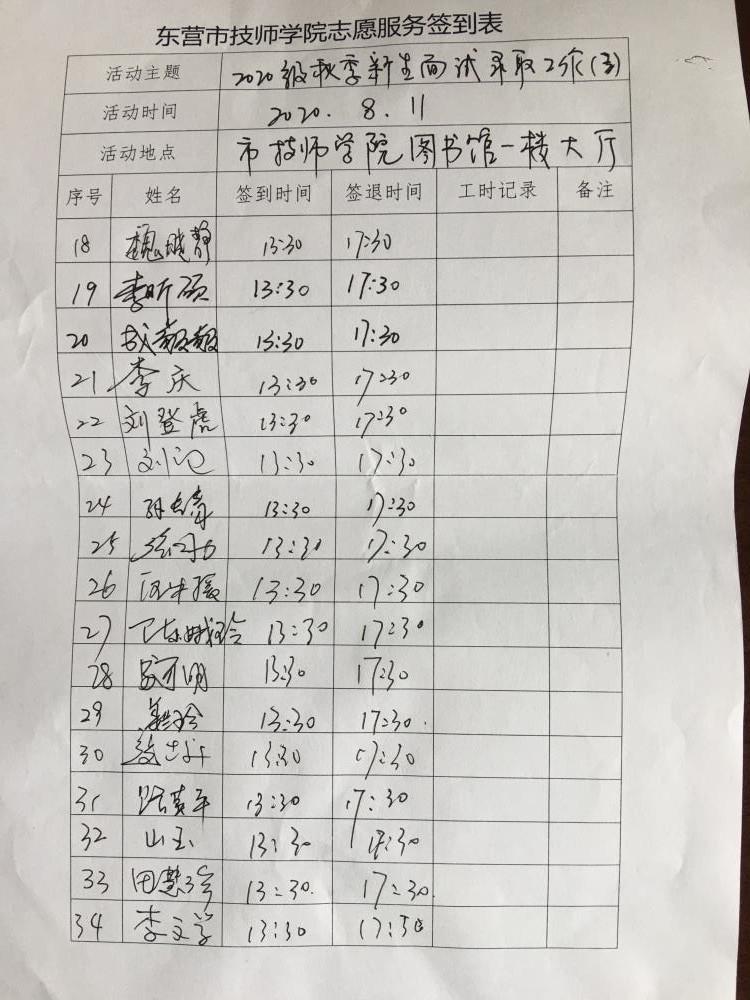 东营市技师学院志愿服务签到表
活动主题 2020级秋季新生面试录取工作(3)
活动时间 2020.8.11
活动地点 市技师学院图书馆一楼大厅
序号 姓名 签到时间 签退时间 工时记录 备注
18 魏晓静 13:30 17:30
19 李昕硕 13:30 17:30
20 13:30 17:30
21 李庆 13:30 17:30
22 刘登虎 13:30 17:30
23 刘 13:30 17:30
24 13:30 17:30
25 13:30 17:30
26 13:30 17:30
27 13:30 17:30
28 13:30 17:30
29 13:30 17:30.
30 13:30 17:30
31 13:30 17:30
32 山玉 13:30 17:30
33 田慧 13:30. 17:30.
34 李文学 13:30 17:30